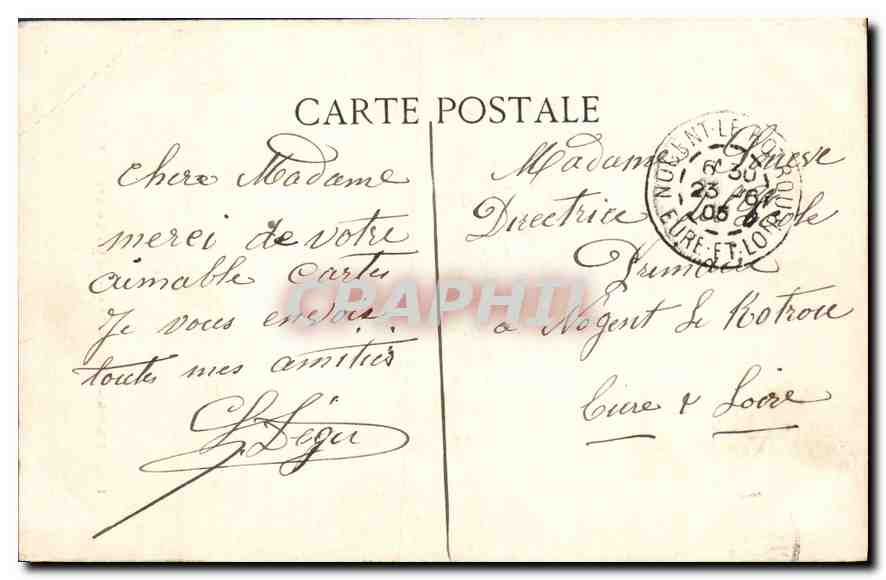 CARTE POSTALE
chere Madame
merci de votre
aimable cartes
Je vous envois
toutes mes amitiés
Madame
Directrice
Primaire
a Nogent le Rotrou
Eure & Loire
NOGENT-LE-ROTROU
6 30
23 -6
05
EURE-ET-LOIR
CPAPHIL